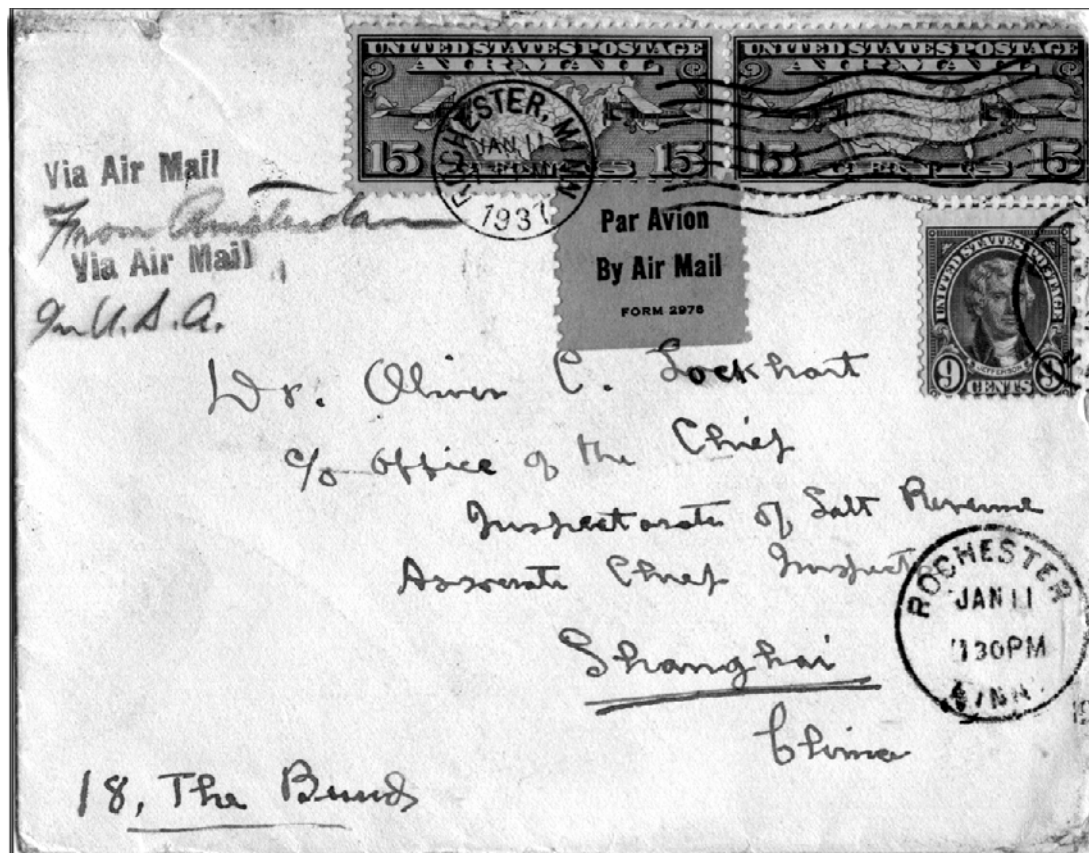 UNITED STATES POSTAGE
AIR MAIL
15 CENTS 15
UNITED STATES POSTAGE
AIR MAIL
15 CENTS 15
ROCHESTER, MINN
JAN 11
1937
Via Air Mail
From Amsterdam
Via Air Mail
In U.S.A.
Par Avion
By Air Mail
FORM 2978
UNITED STATES POSTAGE
JEFFERSON
9 CENTS 9
Dr. Oliver C. Lockhart
c/o Office of the Chief
Inspectorate of Salt Revenue
Associate Chief Inspector
Shanghai
China
ROCHESTER
JAN 11
130PM
MINN
18, The Bund